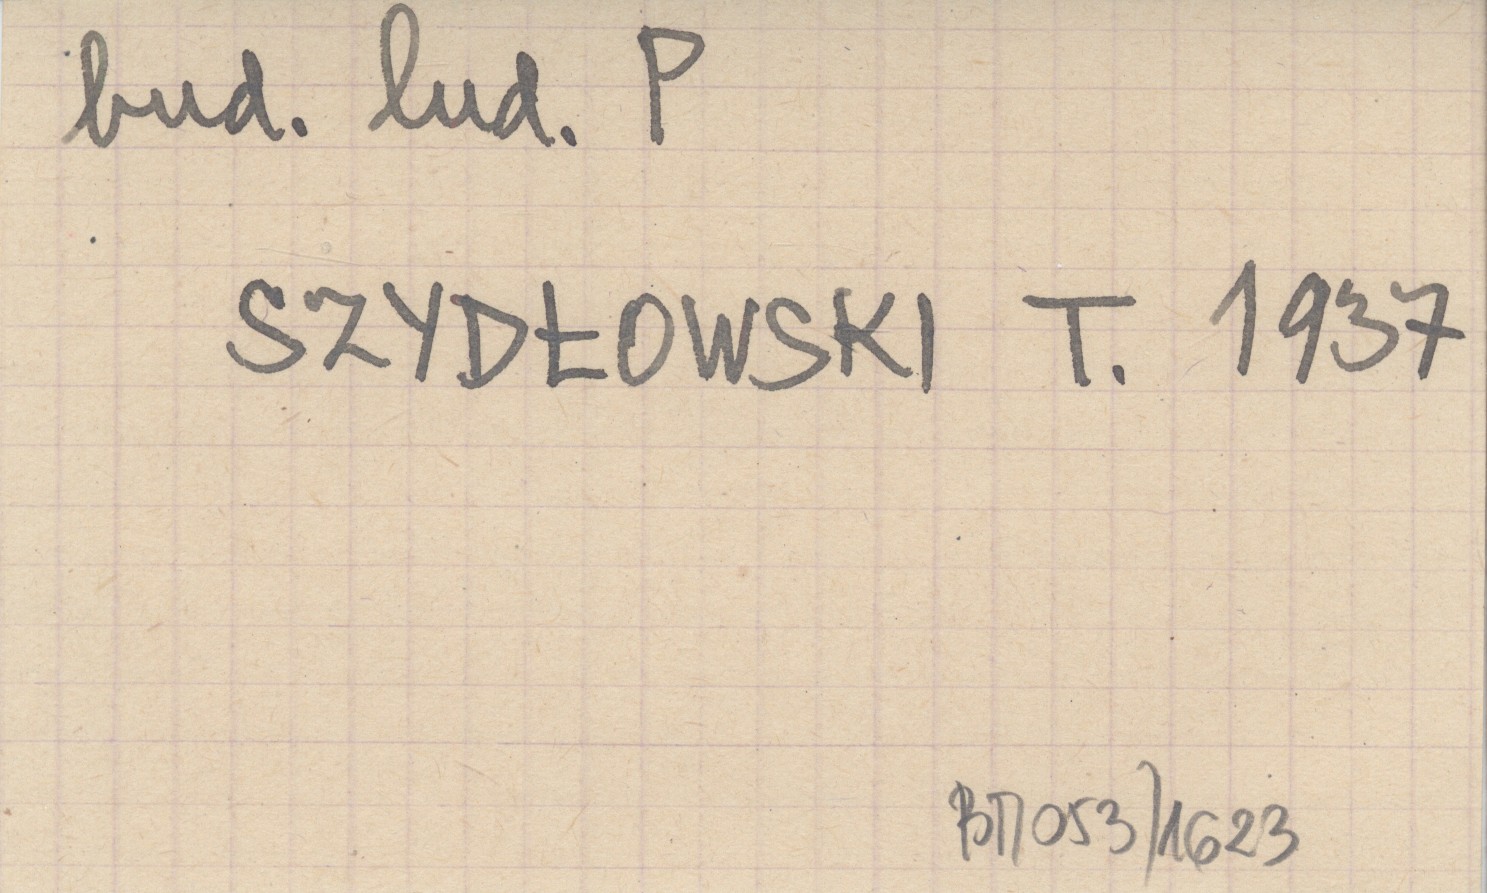 bud. lud. P
SZYDŁOWSKI T. 1937
ВП053/1623